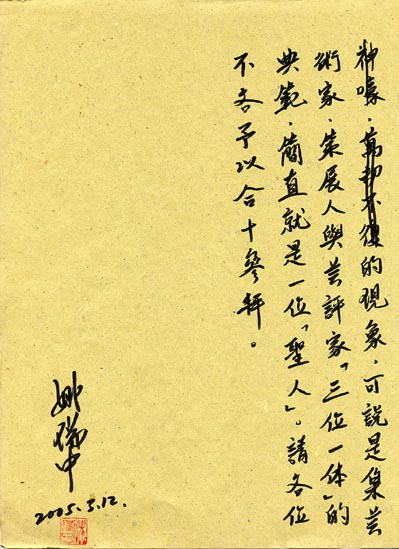 神嚎，萬劫不復的現象，可說是集芸
術家、策展人與芸評家「三位一体」的
典範，簡直就是一位「聖人」。請各位
不吝予以合十參拜。
姚瑞中
2005.3.12.